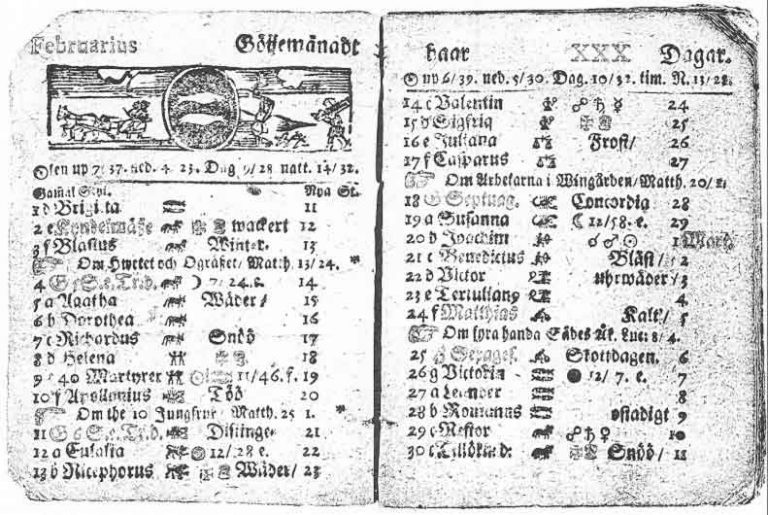 Februarius Göijemånadt
Solen up 7/37. ned. 4 23. Dag 9/28 natt. 14/32.
Gamal Styl. Nya St.
1 d Brigitta 11
2 e Kyndelmässe wackert 12
3 f Blasius Winter. 13
Om Hwetet och Ogräset/ Matth. 13/24.
4 G 5 S.e.Tr.d. 7/24.e. 14
5 a Agatha Wäder/ 15
6 b Dorothea 16
7 c Richardus Snöö 17
8 d Helena 18
9 e 40 Martyrer 11/46.f. 19
10 f Apollonius Töö 20
Om the 10 Jungfrur/ Matth. 25 1.
11 G 6 S.e.Tr.d. Distinge 21
12 a Eulalia 12/28 e. 22
13 b Nicephorus Wäder/ 23
haar XXX Dagar.
☉ up 6/39. ned. 5/30. Dag. 10/32. tim. N. 13/28.
14 c Valentin ☍ ♄ ☿ 24
15 d Sigfrid 25
16 e Juliana Frost/ 26
17 f Casparus 27
Om Arbetarna i Wingården/ Matth. 20/1.
18 G Septuag. Concordia 28
19 a Susanna ☾ 12/58. e. 29
20 b Joachim ☌ ♂ ☉ 1 Mart.
21 c Benedictus Bläst/ 2
22 d Victor uhrwäder/ 3
23 e Tertulian 4
24 f Matthias Kalt/ 5
Om fyra handa Sädes Åk. Luc: 8/4.
25 G Sexages. Skottdagen. 6
26 g Victorin ● 12/7. e. 7
27 a Leander 8
28 b Romanus ostadigt 9
29 c Nestor ☍ ♄ ♀ 10
30 c Snöö/ 11